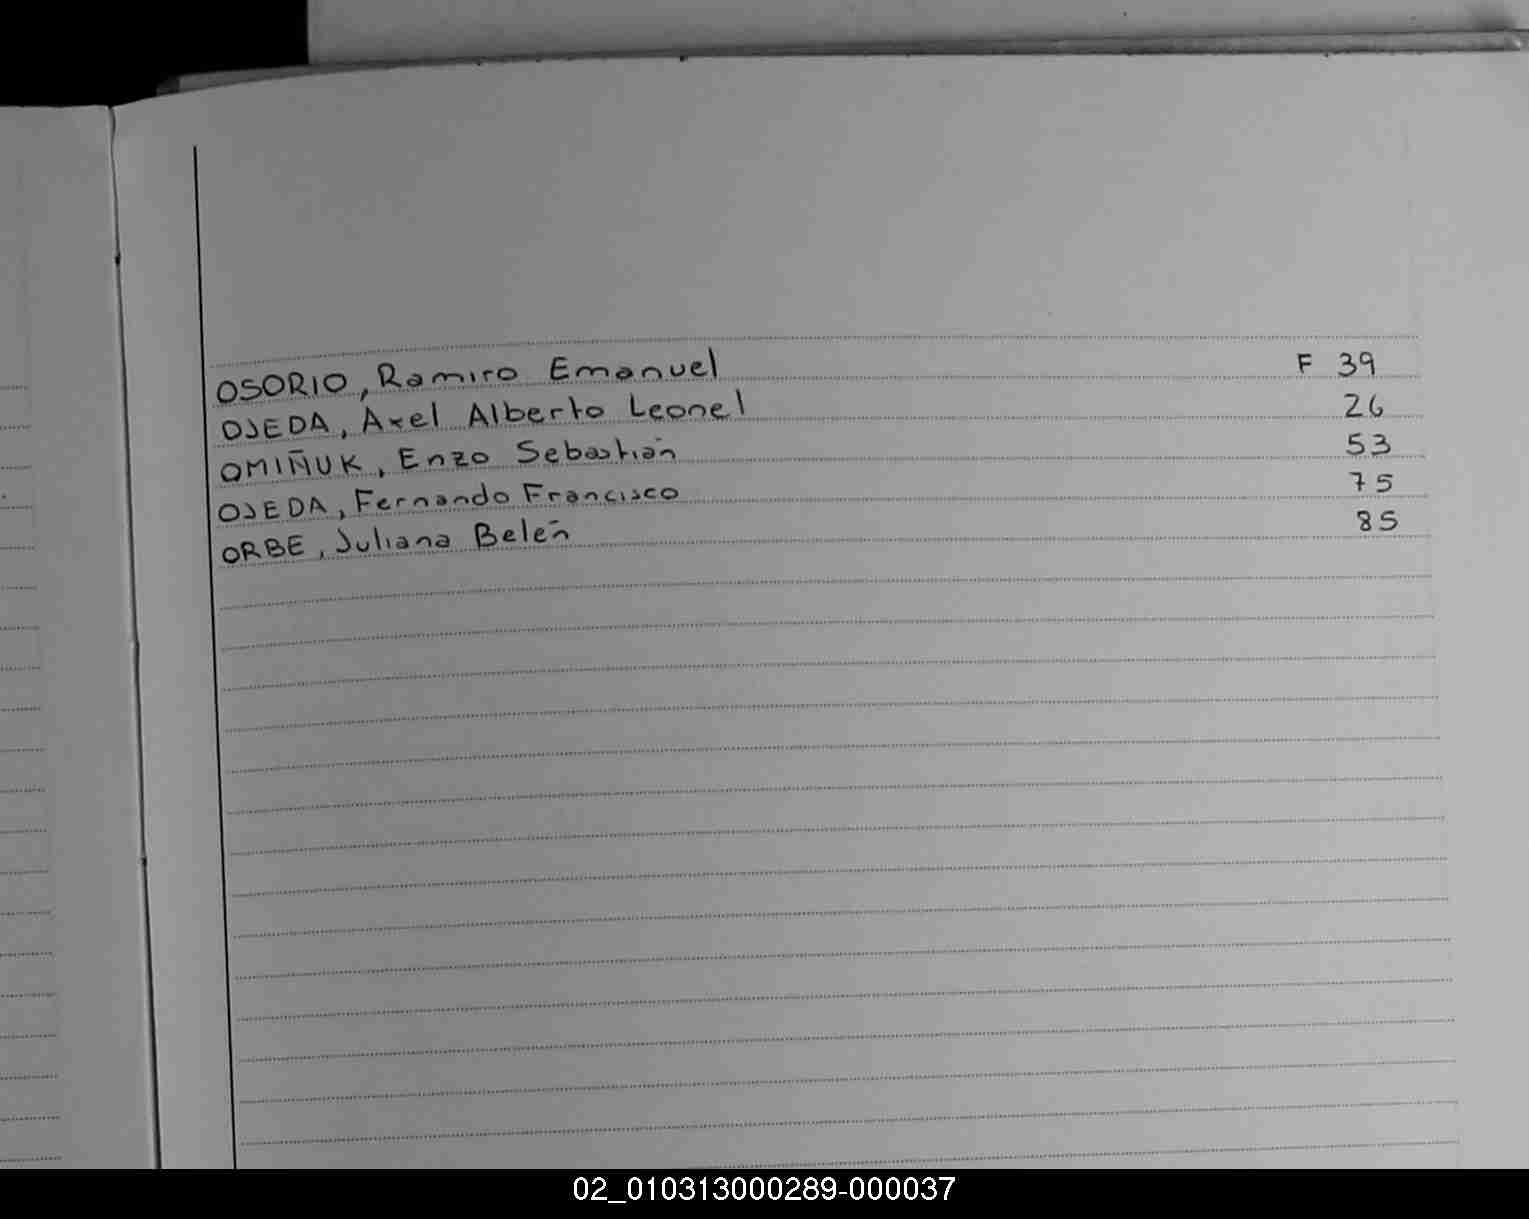 OSORIO, Ramiro Emanuel F 39
OJEDA, Axel Alberto Leonel 26
OMIÑUK, Enzo Sebastián 53
OJEDA, Fernando Francisco 75
ORBE, Juliana Belén 85
02_010313000289-000037